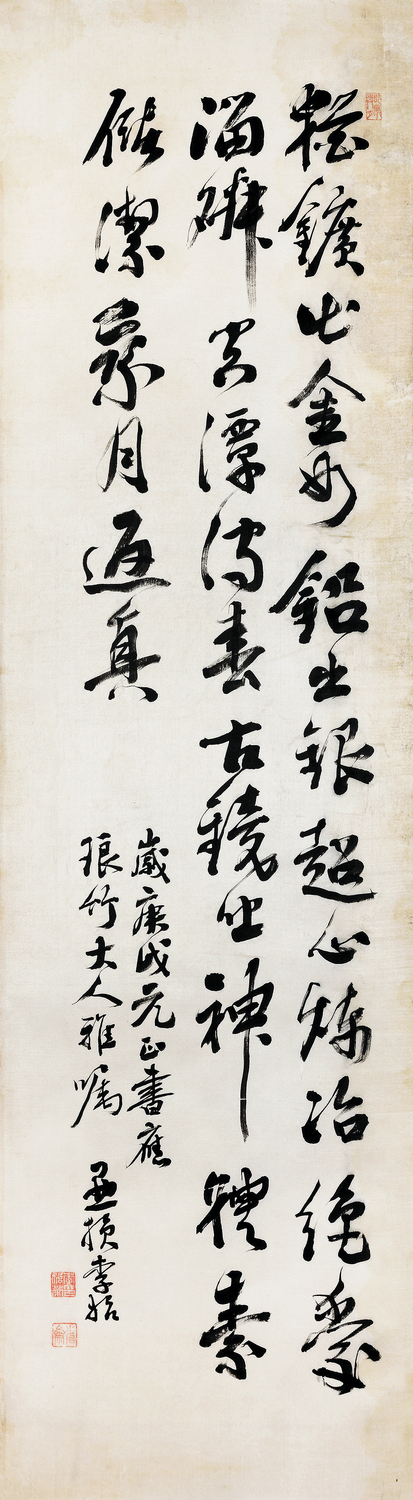 猶鑛出金如鉛出銀超心煉冶絕愛
淄磷空潭瀉春古鏡照神體素
儲潔乘月返真
歲庚戌元正書應
琅竹大人雅嘱 李